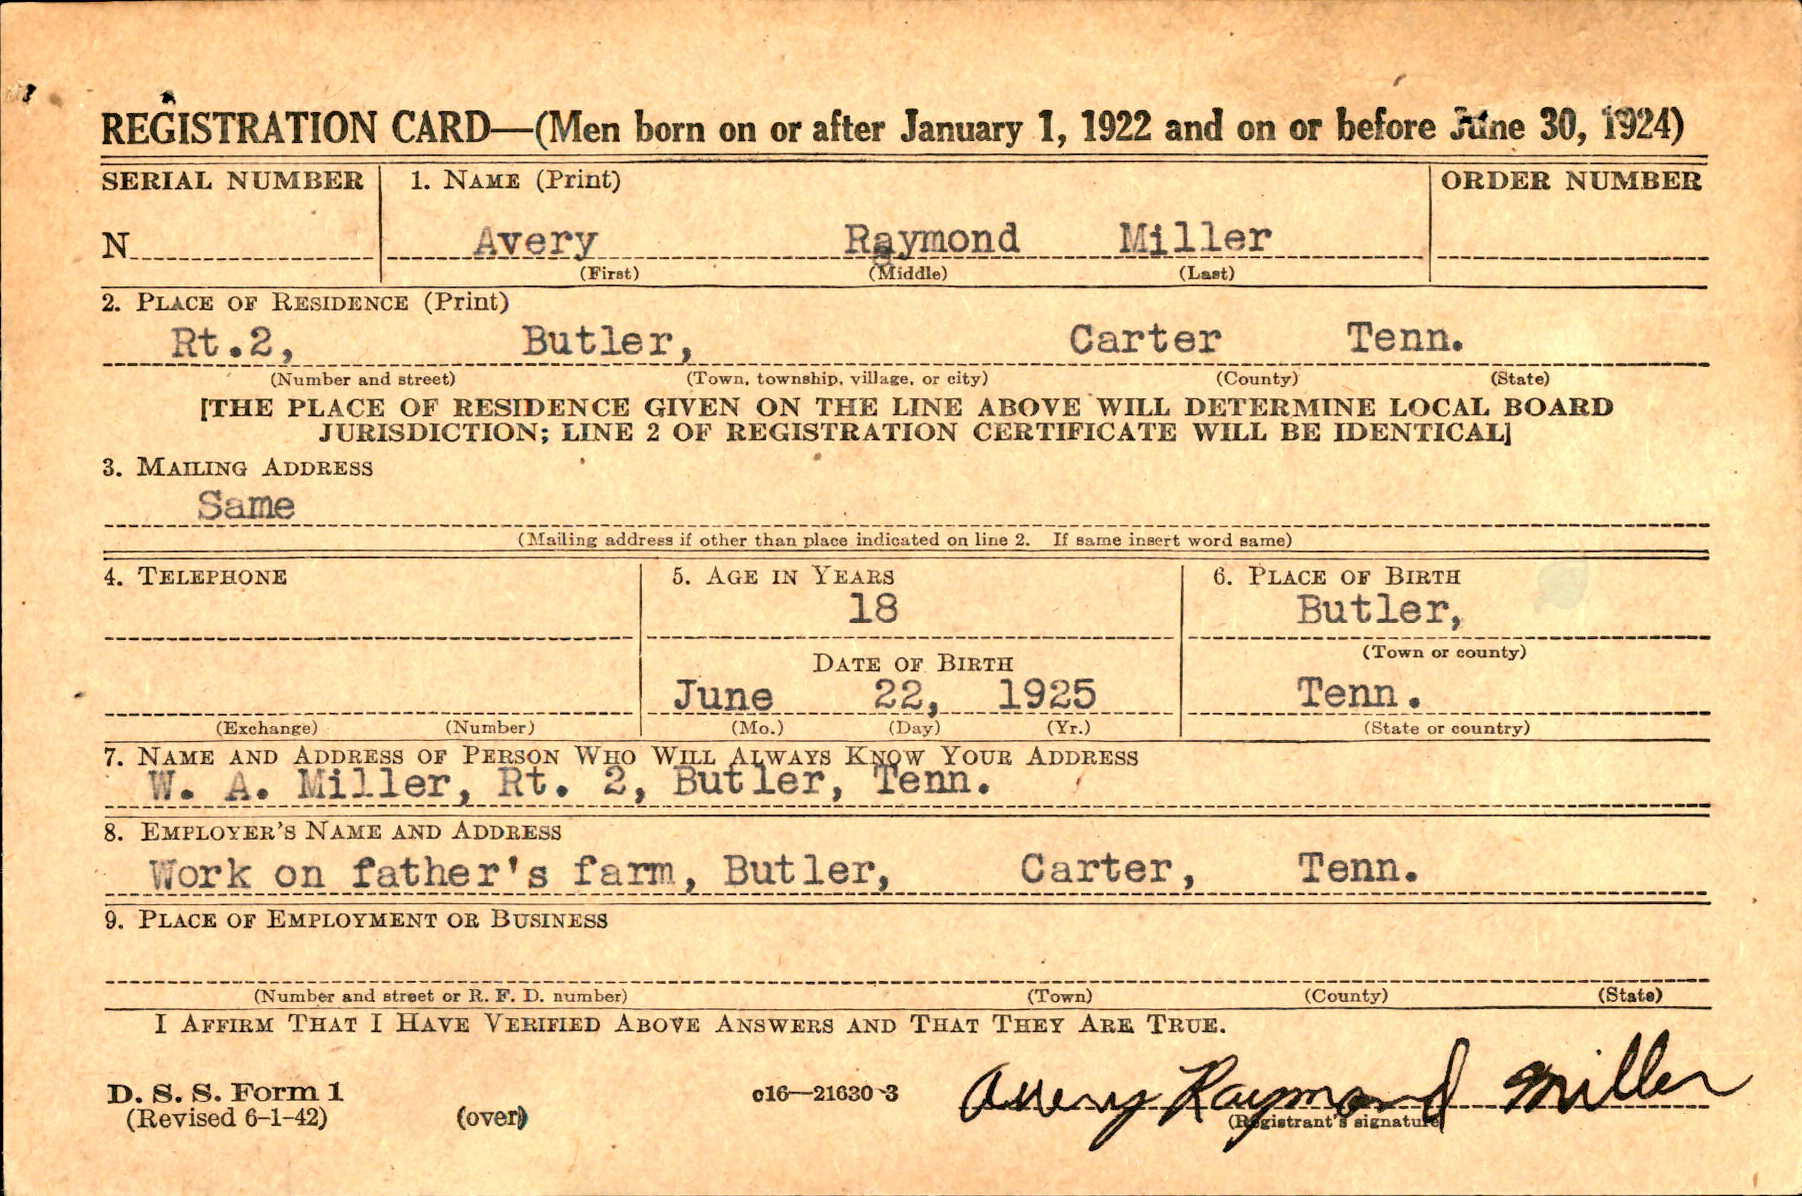 REGISTRATION CARD—(Men born on or after January 1, 1922 and on or before June 30, 1924)
SERIAL NUMBER 1. NAME (Print) ORDER NUMBER
N Avery Raymond Miller
(First) (Middle) (Last)
2. PLACE OF RESIDENCE (Print)
Rt.2, Butler, Carter Tenn.
(Number and street) (Town, township, village, or city) (County) (State)
[THE PLACE OF RESIDENCE GIVEN ON THE LINE ABOVE WILL DETERMINE LOCAL BOARD
JURISDICTION; LINE 2 OF REGISTRATION CERTIFICATE WILL BE IDENTICAL]
3. MAILING ADDRESS
Same
(Mailing address if other than place indicated on line 2. If same insert word same)
4. TELEPHONE 5. AGE IN YEARS 6. PLACE OF BIRTH
18 Butler,
DATE OF BIRTH (Town or county)
June 22, 1925 Tenn.
(Exchange) (Number) (Mo.) (Day) (Yr.) (State or country)
7. NAME AND ADDRESS OF PERSON WHO WILL ALWAYS KNOW YOUR ADDRESS
W. A. Miller, Rt. 2, Butler, Tenn.
8. EMPLOYER'S NAME AND ADDRESS
Work on father's farm, Butler, Carter, Tenn.
9. PLACE OF EMPLOYMENT OR BUSINESS
(Number and street or R. F. D. number) (Town) (County) (State)
I AFFIRM THAT I HAVE VERIFIED ABOVE ANSWERS AND THAT THEY ARE TRUE.
D. S. S. Form 1 c16—21630-3 Avery Raymond Miller
(Revised 6-1-42) (over) (Registrant's signature)